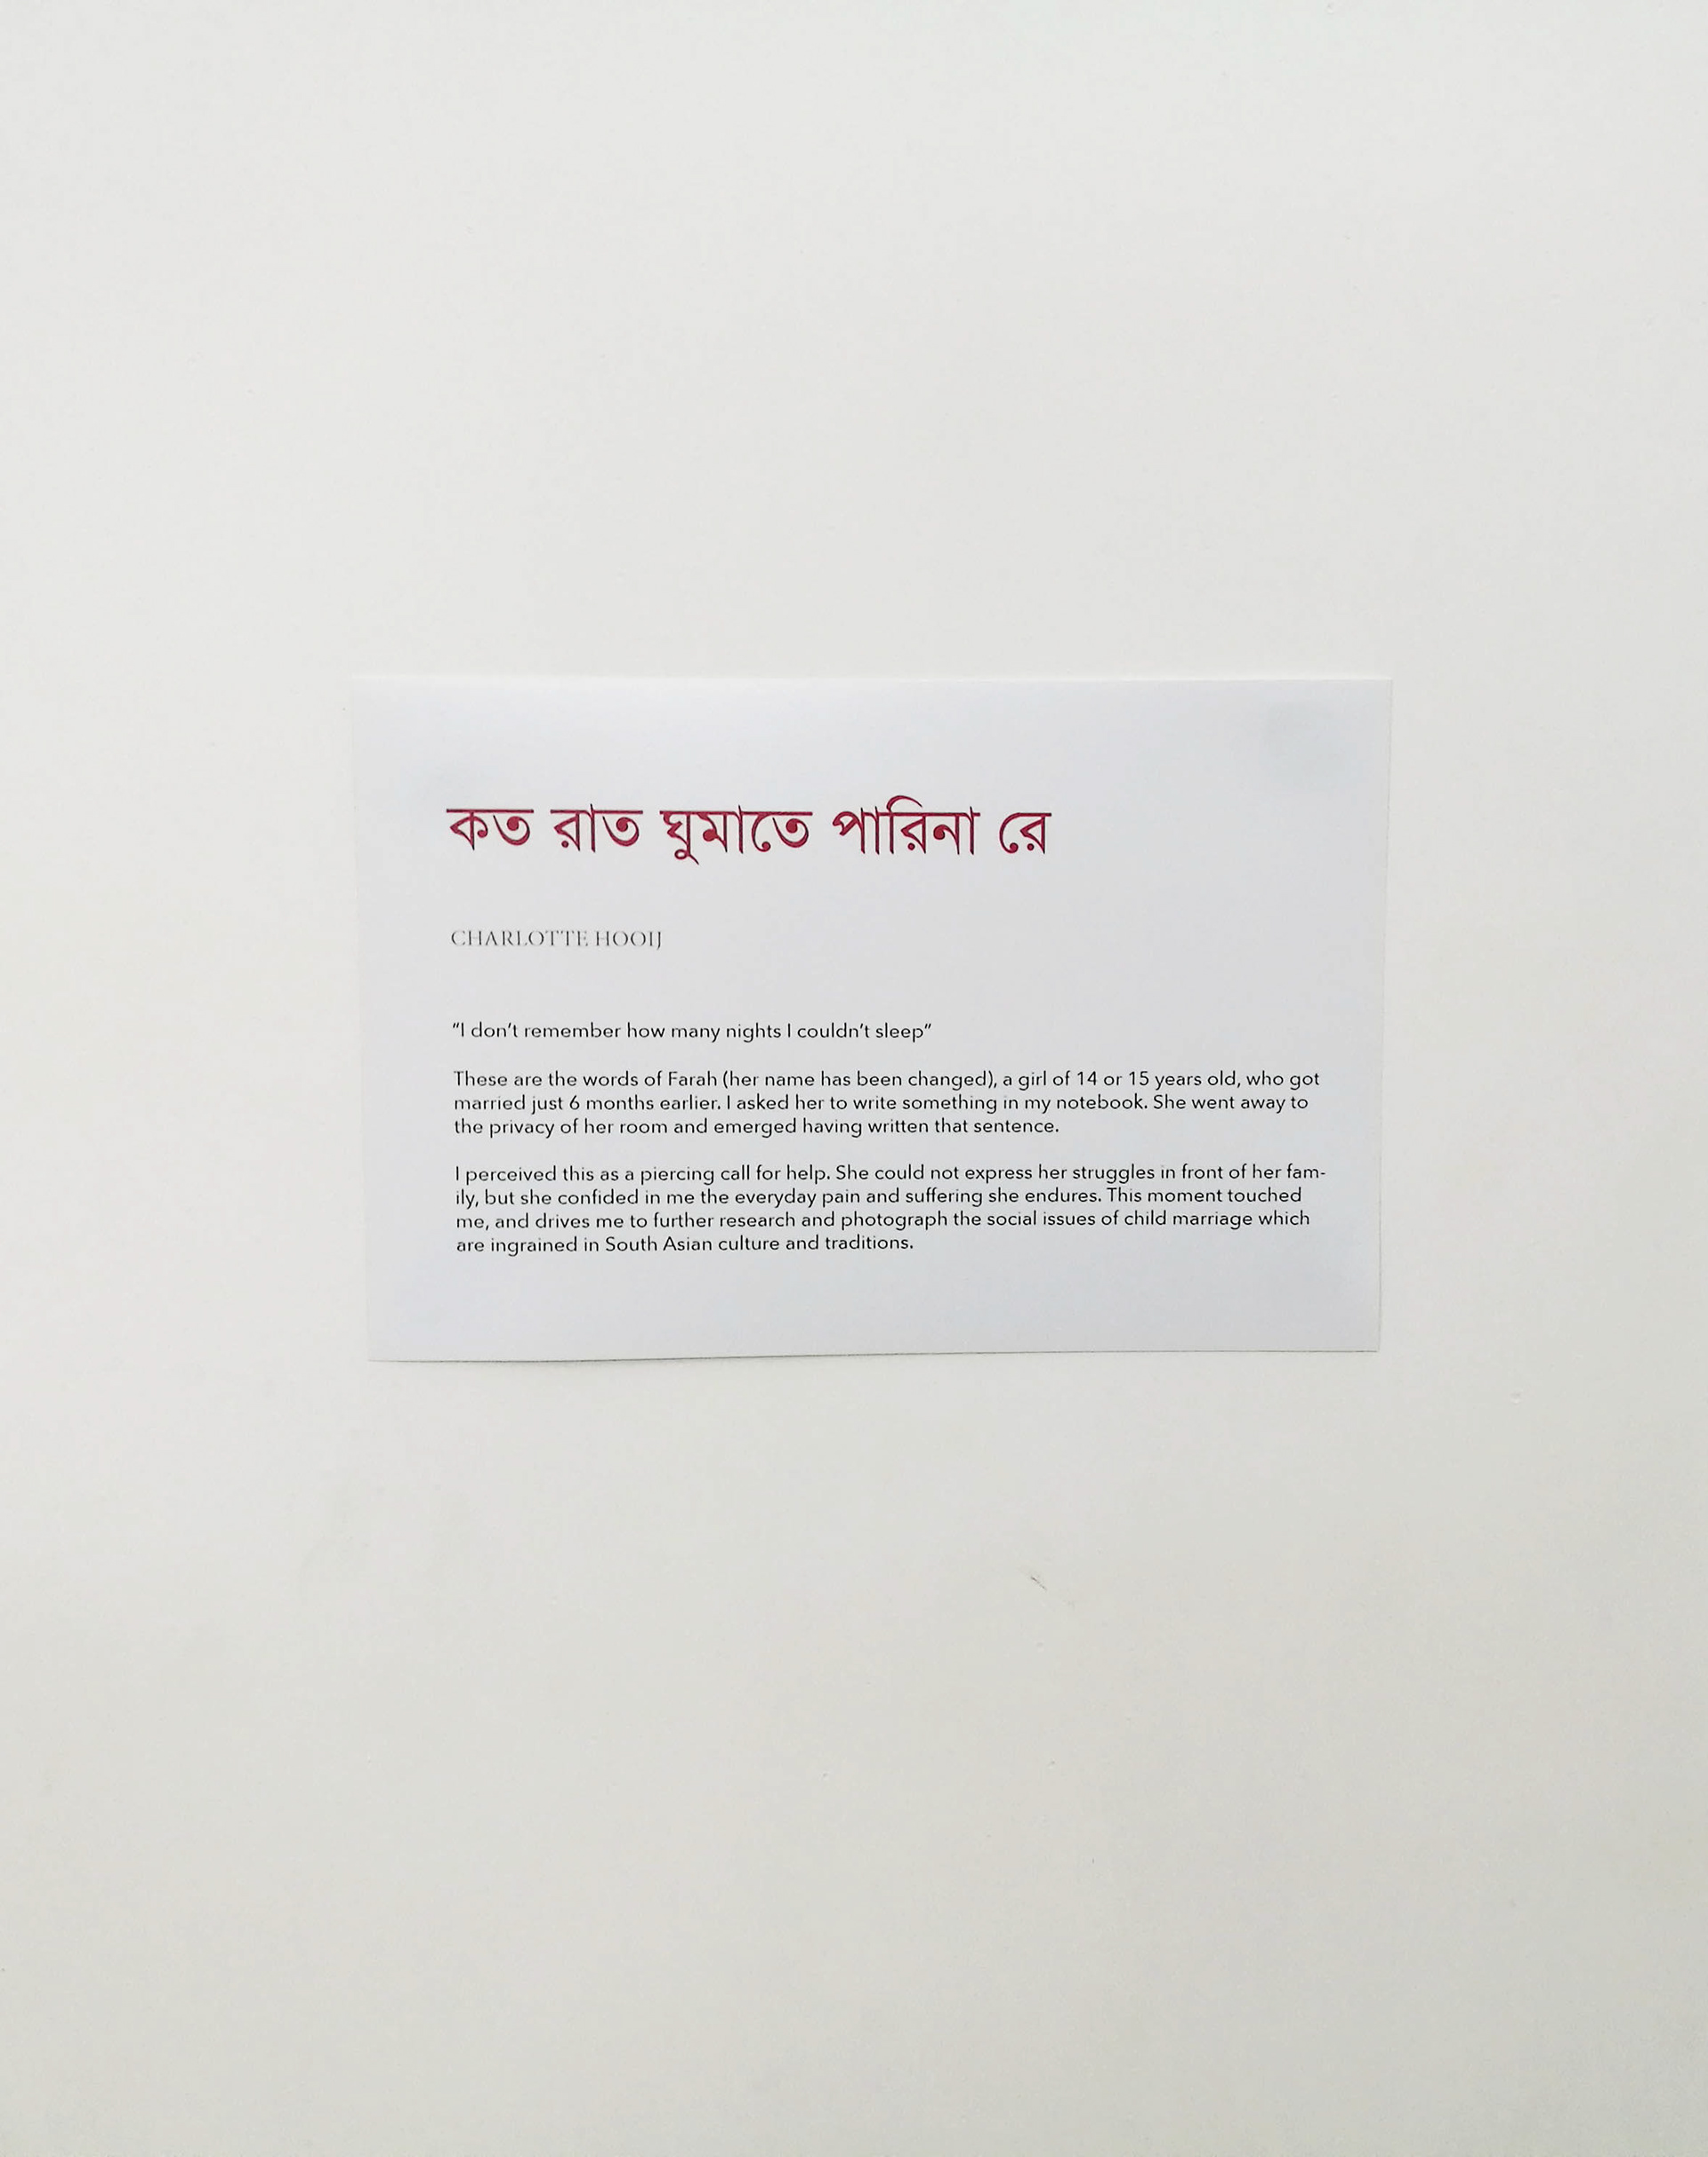 কত রাত ঘুমাতে পারিনা রে
CHARLOTTE HOOIJ
“I don’t remember how many nights I couldn’t sleep”
These are the words of Farah (her name has been changed), a girl of 14 or 15 years old, who got
married just 6 months earlier. I asked her to write something in my notebook. She went away to
the privacy of her room and emerged having written that sentence.
I perceived this as a piercing call for help. She could not express her struggles in front of her fam-
ily, but she confided in me the everyday pain and suffering she endures. This moment touched
me, and drives me to further research and photograph the social issues of child marriage which
are ingrained in South Asian culture and traditions.